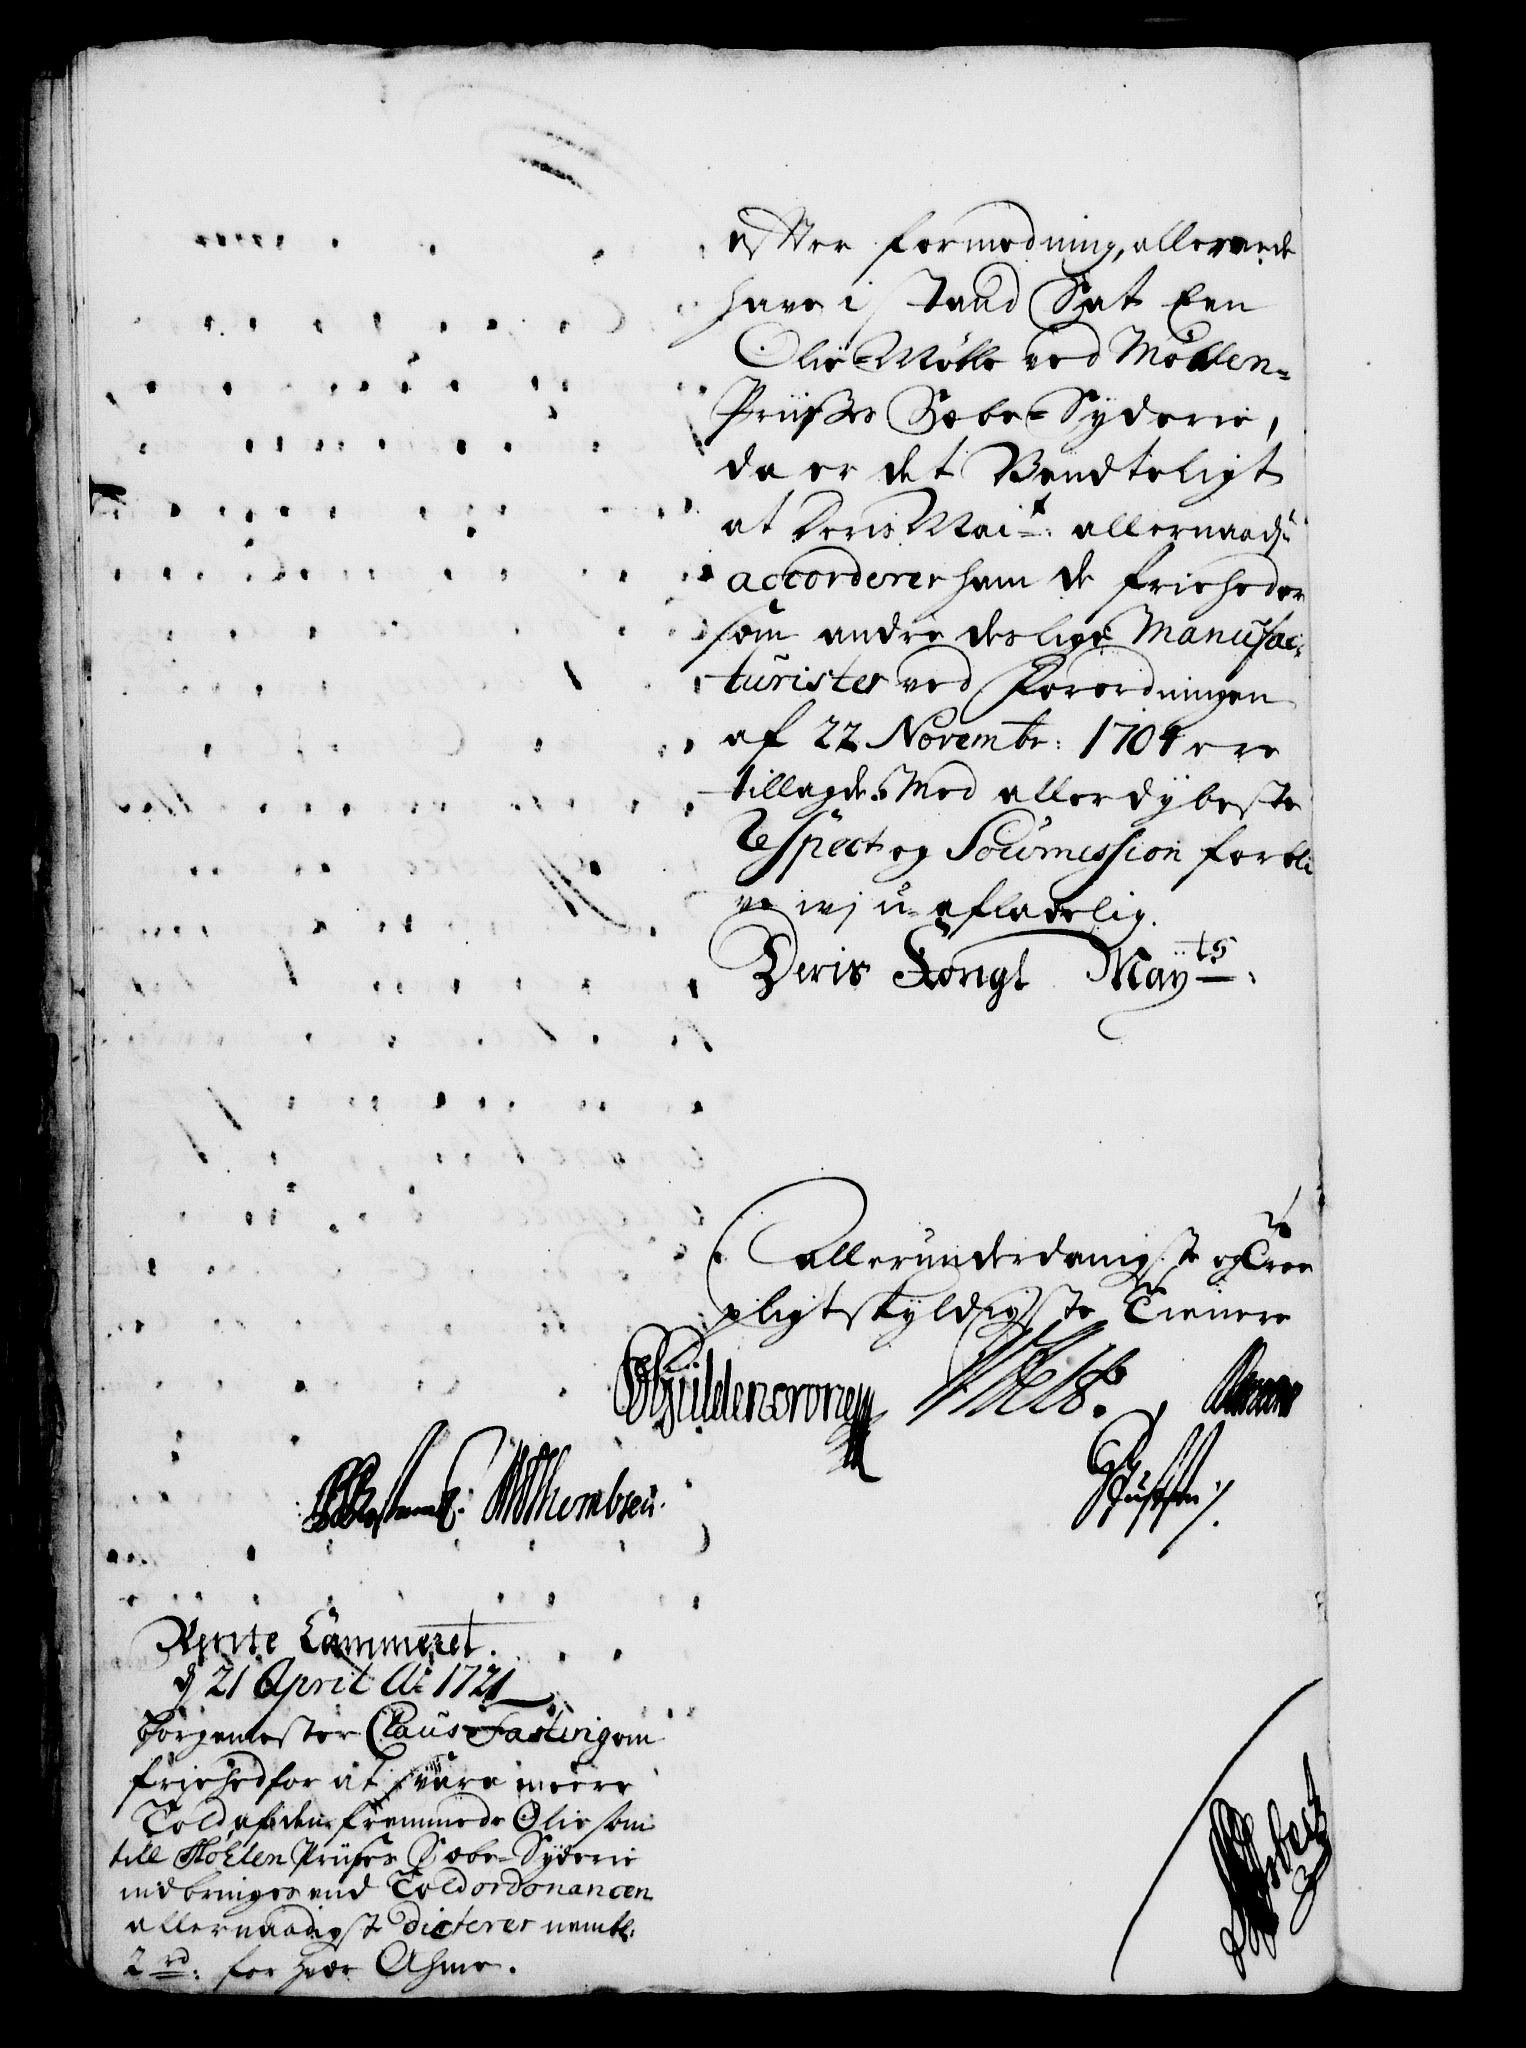 efter formodning, allereede
have i stand Sat Een
Olie-Mølle ved Mollen-
Prüsses Sæbe-Syderie,
da er det Vendteligt
at Deris Mai:t allernaadst
accorderer ham de frieheder
som andre deslige Manufac-
turister ved Forordningen
af 22 Novembr: 1704 ere
tillagde. Med allerdybeste
Respect og Soumission forbli
ve wj u-afladelig.
Deris Kongl May:ts
allerunderdanigste og troe
pligtskyldigste Tienere
Güldencrone
WThombsen
Rente Cammeret.
d 21 April Ao 1721
Borgemester Claus Fasting om
friehed for at svare meere
Told af den fremmede Olie som
till Mohlen Prüses Sæbe-Syderie
indbringes end Toldordonancen
allernaadigst dicterer nembl:
2 rd: for hver Ahme.